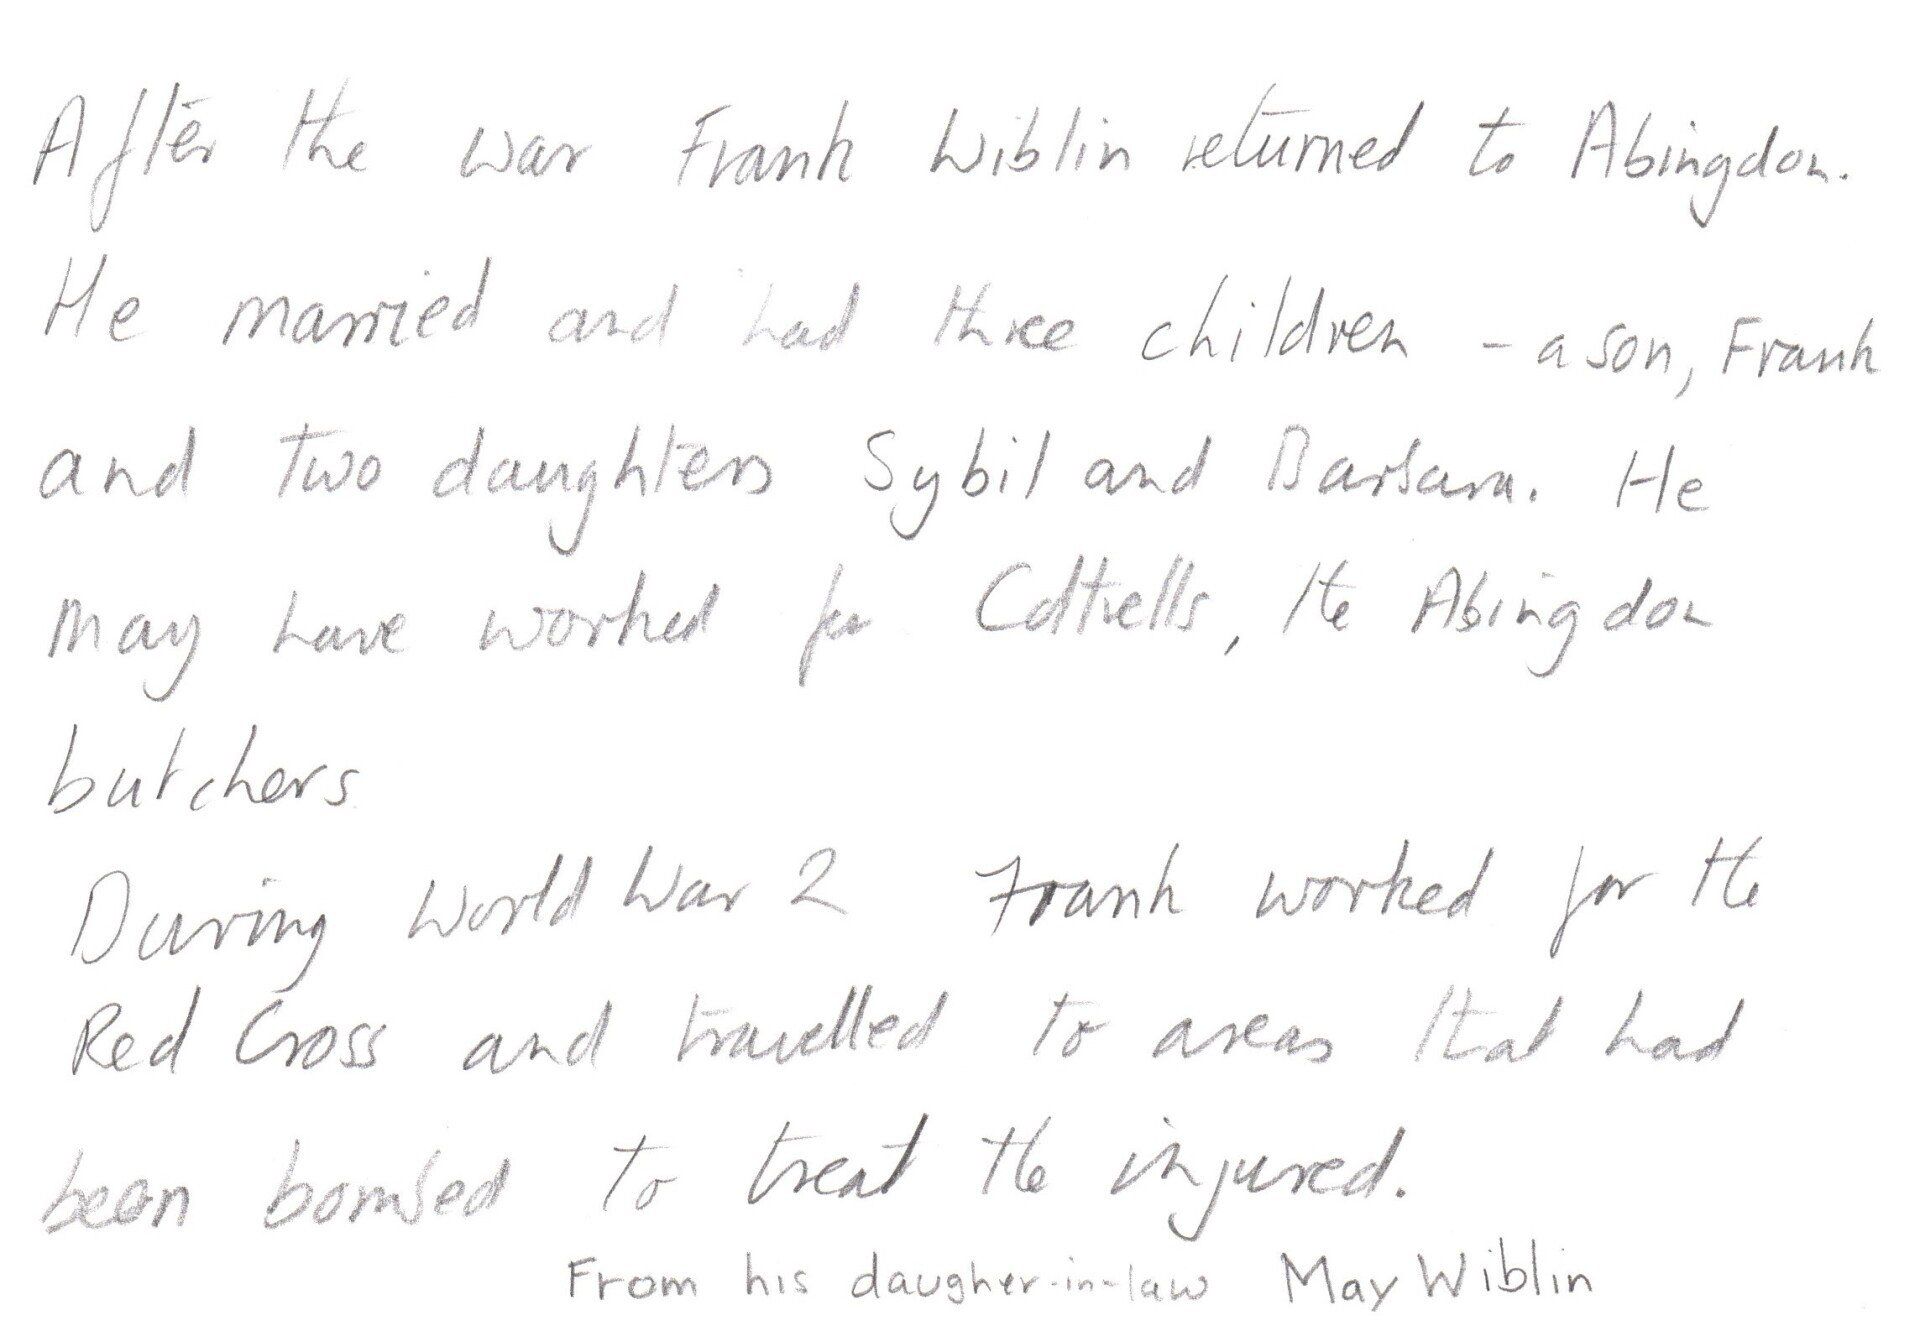 After the war Frank Wiblin returned to Abingdon.
He married and had three children - a son, Frank
and two daughters Sybil and Barbara. He
may have worked for Cottrells, the Abingdon
butchers
During World War 2 Frank worked for the
Red Cross and travelled to areas that had
been bombed to treat the injured.
From his daugher-in-law May Wiblin